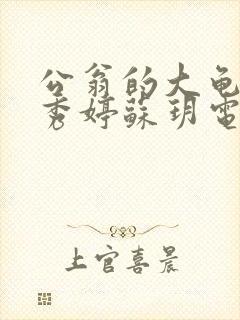 公翁的大龟
秀婷蘇玥電
上官喜晨